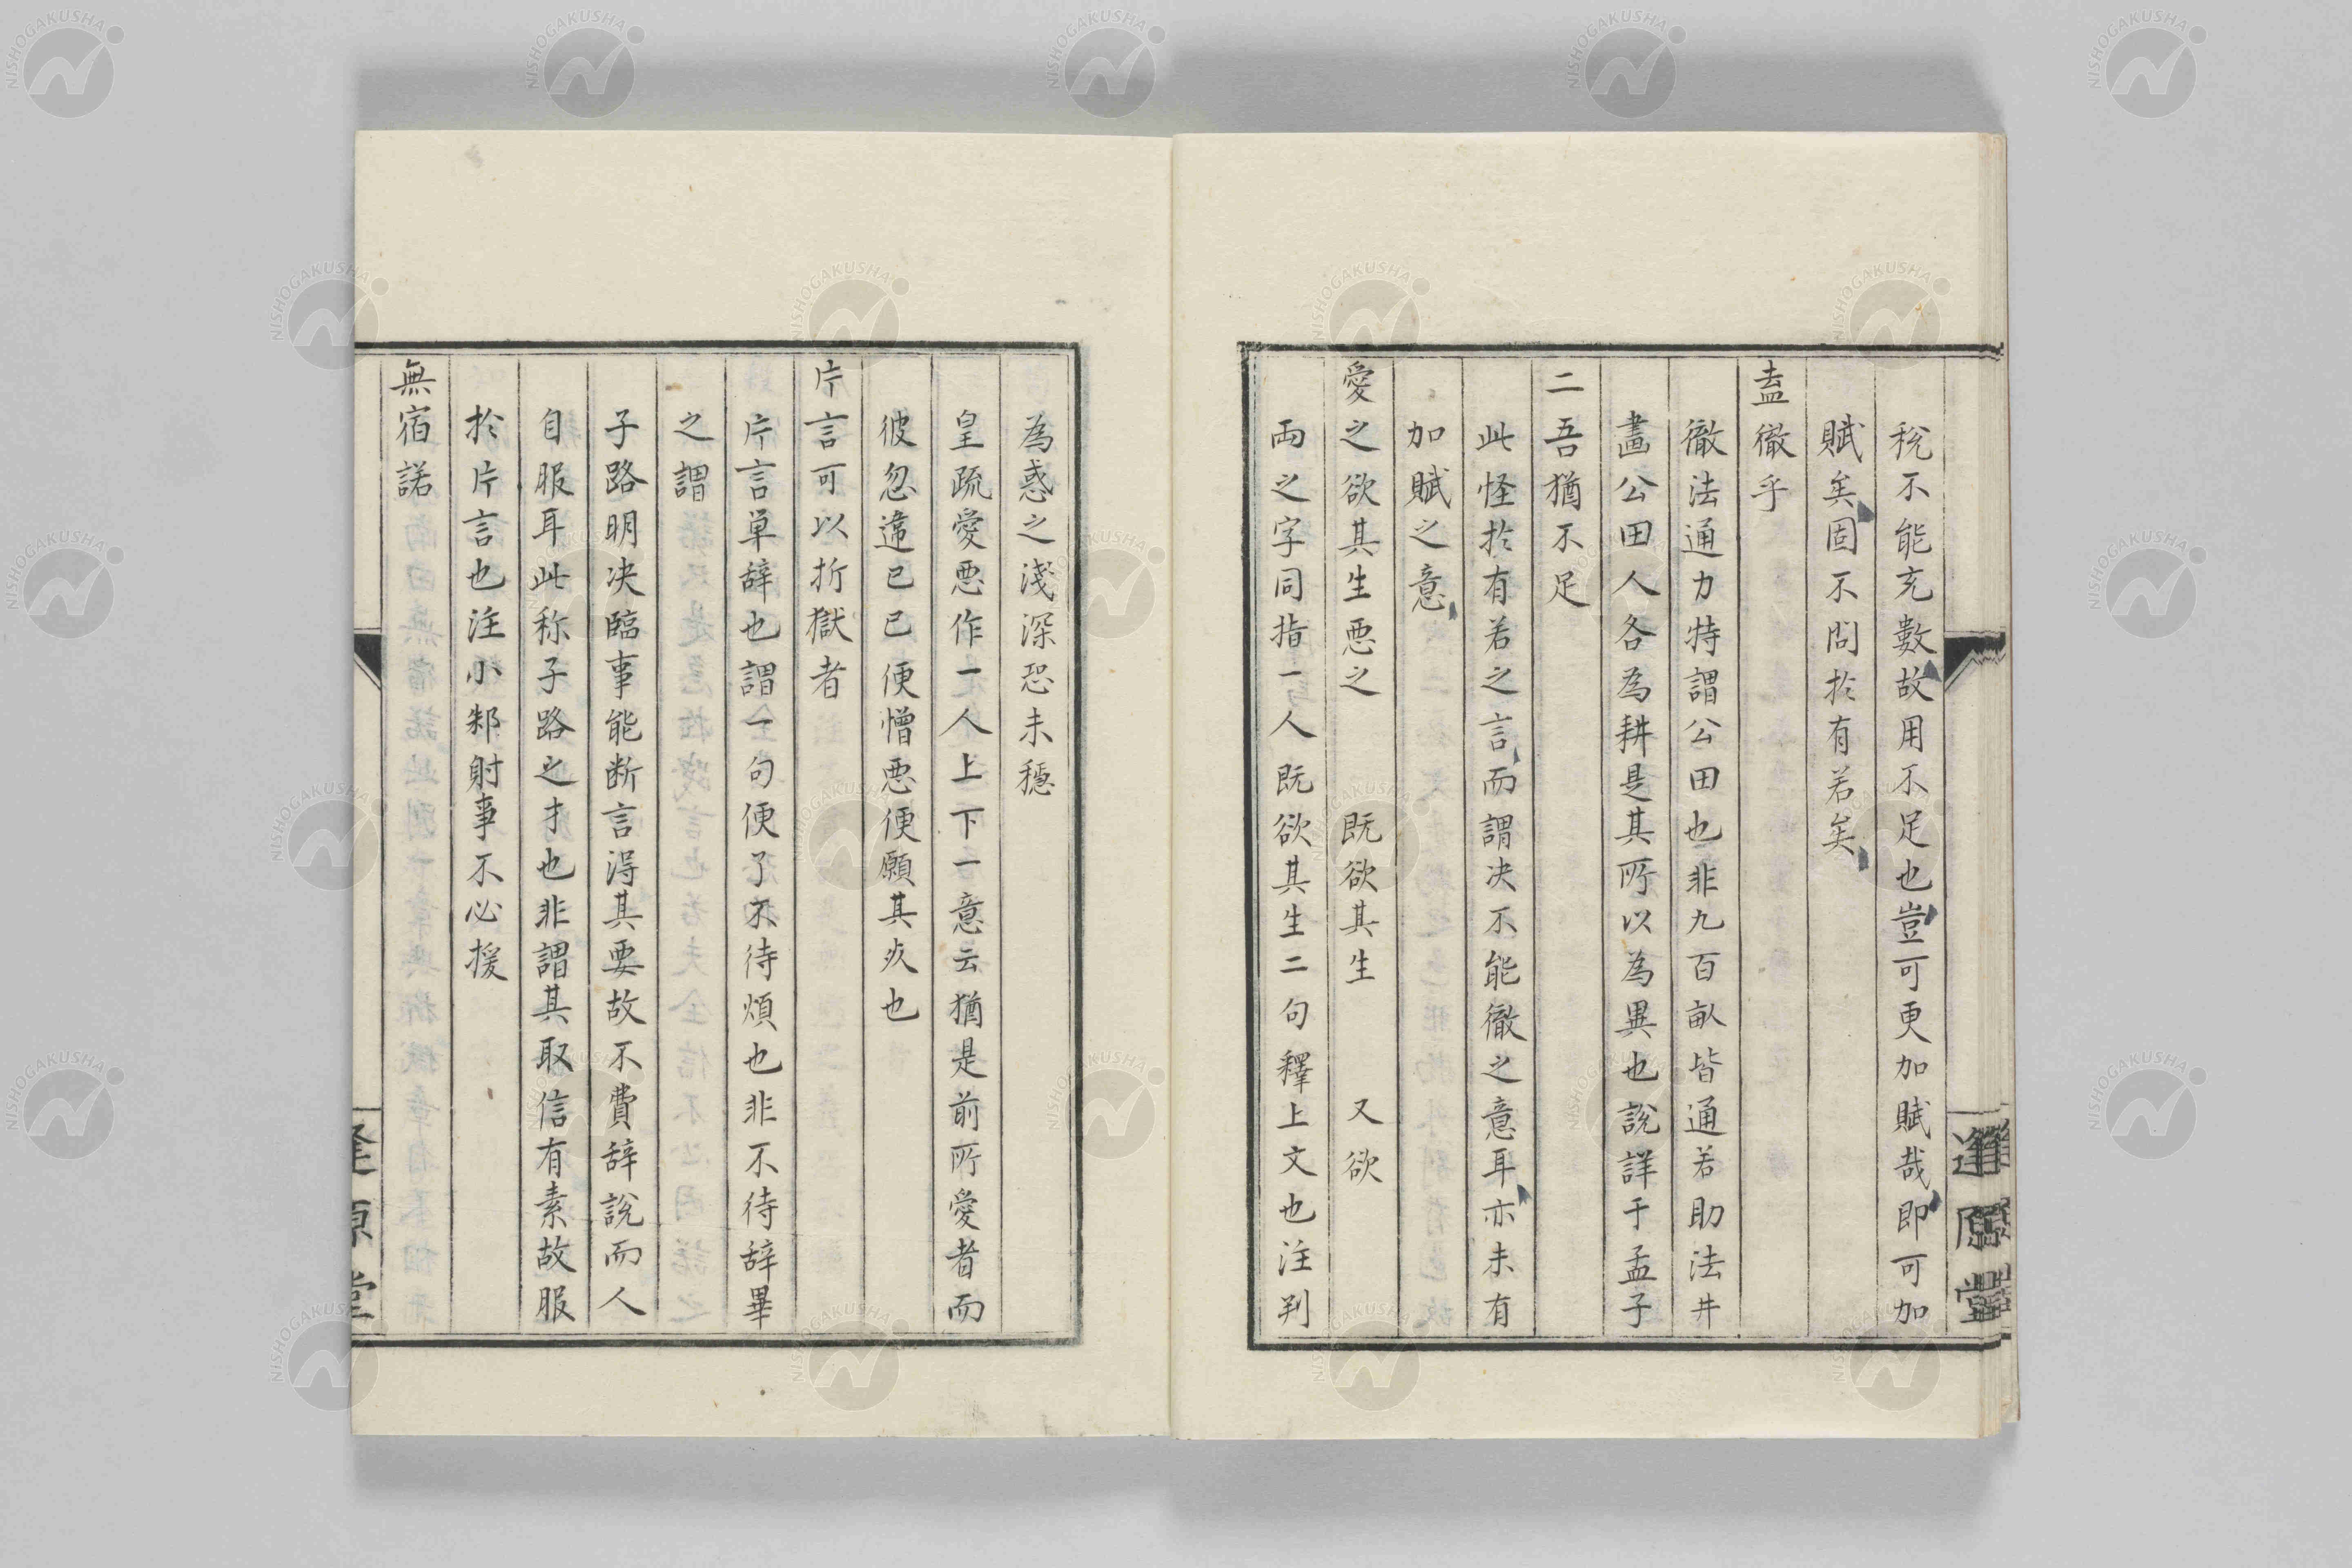 稅不能充數故用不足也豈可更加賦哉即可加
賦矣固不問於有若矣
盍徹乎
徹法通力特謂公田也非九百畝皆通若助法井
畫公田人各為耕是其所以為異也說詳于孟子
二吾猶不足
此怪於有若之言而謂决不能徹之意耳亦未有
加賦之意
愛之欲其生惡之 既欲其生 又欲
兩之字同指一人既欲其生二句釋上文也注判
為惑之淺深恐未穩
皇疏愛惡作一人上下一意云猶是前所愛者而
彼忽違己己便憎惡便願其死也
片言可以折獄者
片言单辞也謂一句便了不待煩也非不待辞畢
之謂
子路明决臨事能断言得其要故不費辞說而人
自服耳此称子路之才也非謂其取信有素故服
於片言也注小邾射事不必援
無宿諾
逢原堂
逢原堂
NISHOGAKUSHA